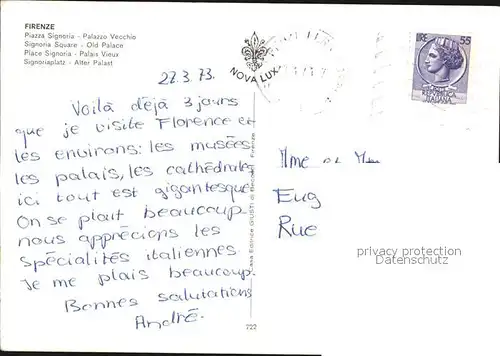 FIRENZE
Piazza Signoria - Palazzo Vecchio
Signoria Square - Old Palace
Place Signoria - Palais Vieux
Signoriaplatz - Alter Palast
NOVA LUX
LIRE 55
REPUBBLICA
ITALIANA
22.3.73.
Voilà déjà 3 jours
que je visite Florence et
les environs: les musées
les palais, les cathédrales
ici tout est gigantesque
On se plait beaucoup.
nous apprécions les
spécialités italiennes
Je me plais beaucoup.
Bonnes salutations
André.
Casa Editrice GIUSTI di Firenze
722
Mme
Eug
Rue
privacy protection
Datenschutz